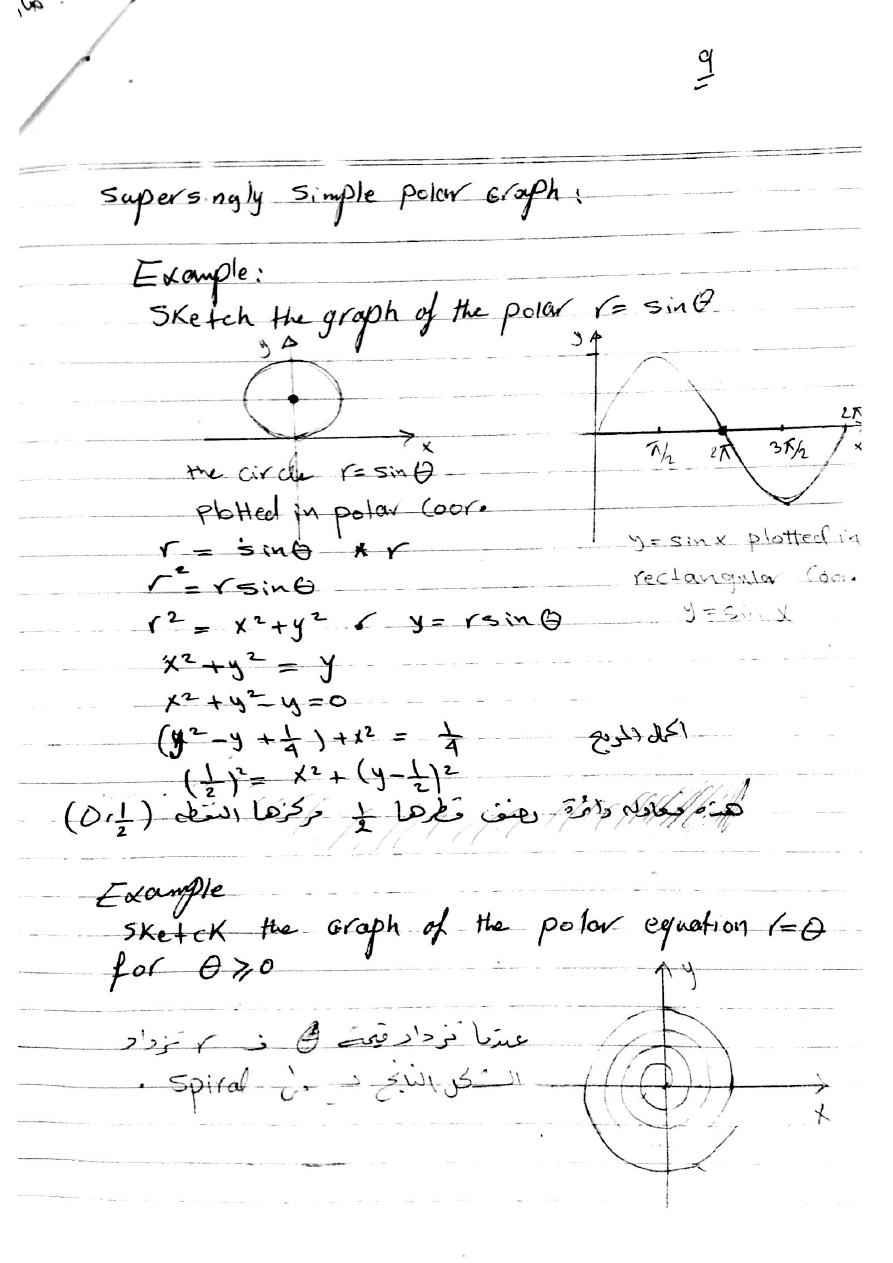 9
Supersingly Simple Polar Graph:
Example:
Sketch the graph of the polar r = sinθ
y
x
the circle r = sinθ
plotted in polar Coor.
y
π/2 2π 3π/2 2π
x
y = sin x plotted in
rectangular Coor.
y = sin x
r = sinθ * r
r² = r sinθ
r² = x² + y² , y = r sinθ
x² + y² = y
x² + y² - y = 0
(y² - y + 1/4) + x² = 1/4 اكمال المربع
(1/2)² = x² + (y - 1/2)²
هذه معادله دائرة بصنف قطرها 1/2 مركزها النقطه (0, 1/2)
Example
Sketck the Graph of the polar equation r = θ
for θ ≥ 0
y
x
عندما تزداد قيمة θ فـ r تزداد
الشكل الناتج Spiral .